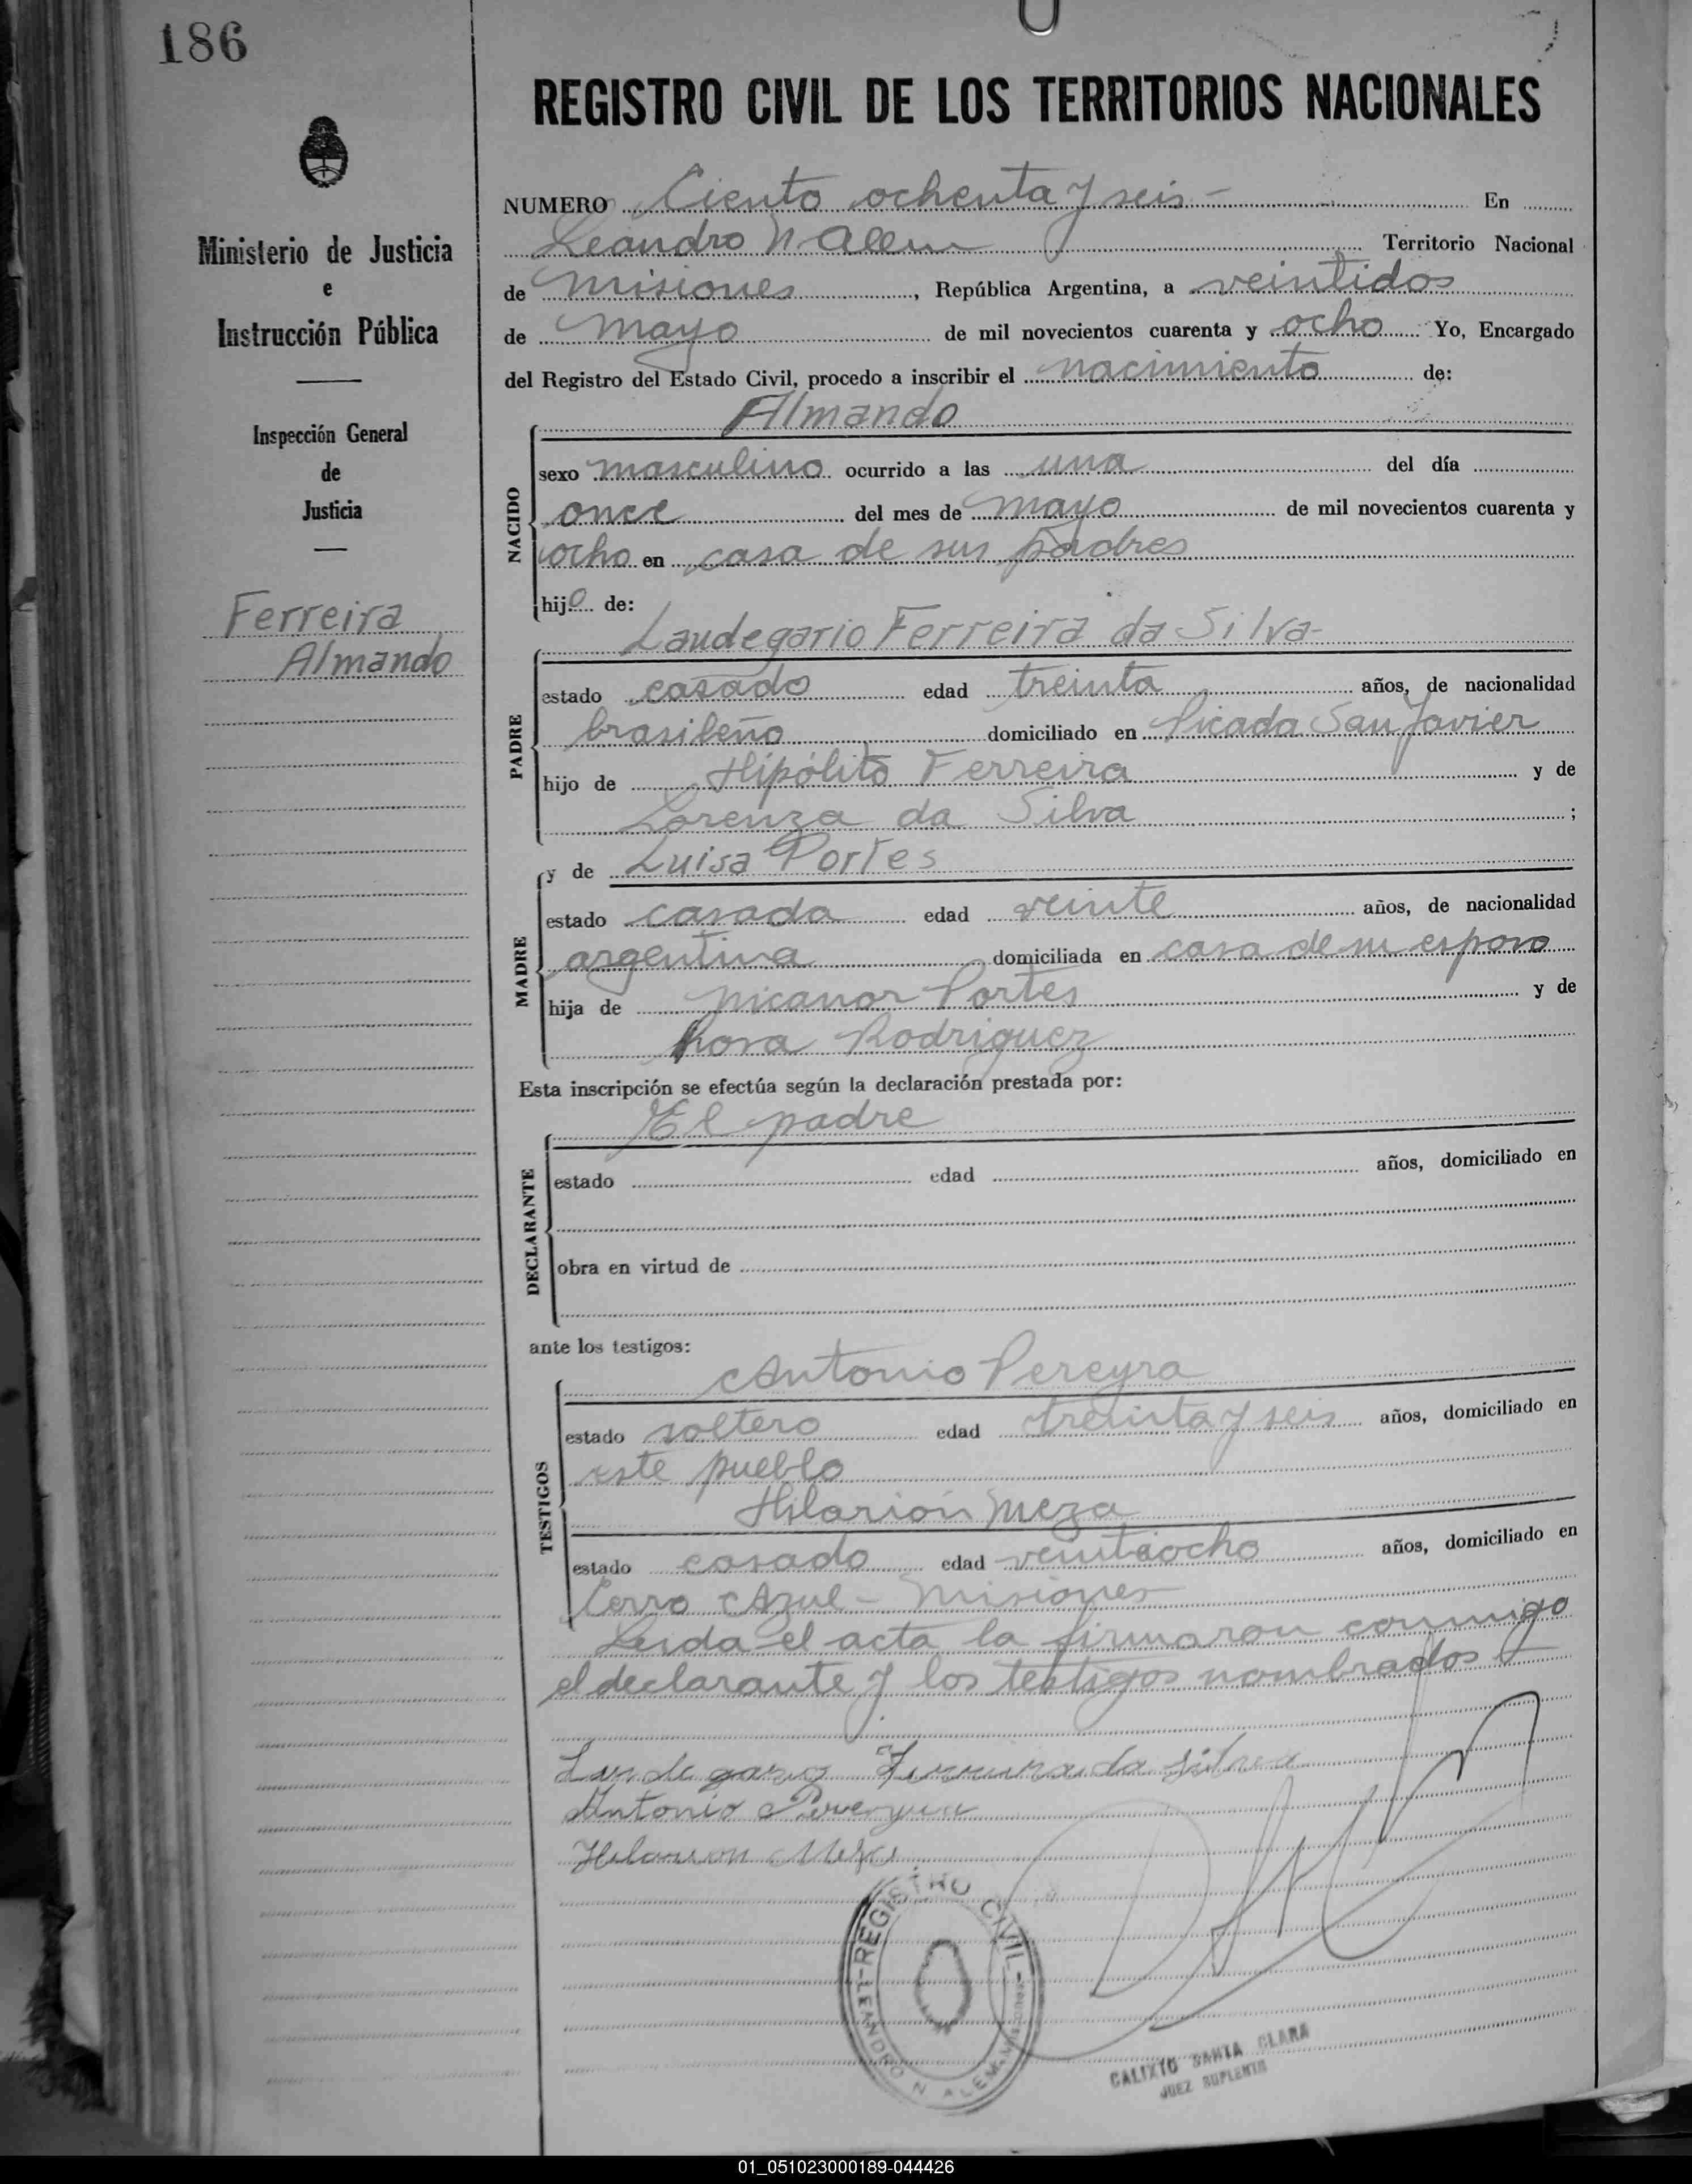 186
REGISTRO CIVIL DE LOS TERRITORIOS NACIONALES
Ministerio de Justicia
e
Instrucción Pública
Inspección General
de
Justicia
Ferreira
Almando
NUMERO Ciento ochenta y seis - En
Leandro N Alem Territorio Nacional
de Misiones, República Argentina, a veintidos
de mayo de mil novecientos cuarenta y ocho Yo, Encargado
del Registro del Estado Civil, procedo a inscribir el nacimiento de:
Almando
NACIDO
sexo masculino ocurrido a las una del día
once del mes de mayo de mil novecientos cuarenta y
ocho en casa de sus padres
hijo de:
Laudegario Ferreira da Silva-
PADRE
estado casado edad treinta años, de nacionalidad
brasileño domiciliado en Picada San Javier
hijo de Hipólito Ferreira y de
Lorenza da Silva ;
y de Luisa Portes
MADRE
estado casada edad veinte años, de nacionalidad
argentina domiciliada en casa de su esposo
hija de Nicanor Portes y de
Rosa Rodriguez
Esta inscripción se efectúa según la declaración prestada por:
El padre
DECLARANTE
estado edad años, domiciliado en
obra en virtud de
ante los testigos:
Antonio Pereyra
TESTIGOS
estado soltero edad treinta y seis años, domiciliado en
este pueblo
Hilarión Meza
estado casado edad veintiocho años, domiciliado en
Cerro Azul - Misiones
Leida el acta la firmaron conmigo
el declarante y los testigos nombrados
Landegario Ferreira da Silva
Antonio Pereyra
Hilarion Meza
REGISTRO CIVIL - LEANDRO N. ALEM
CALIXTO SANTA CLARA
JUEZ SUPLENTE
01_051023000189-044426